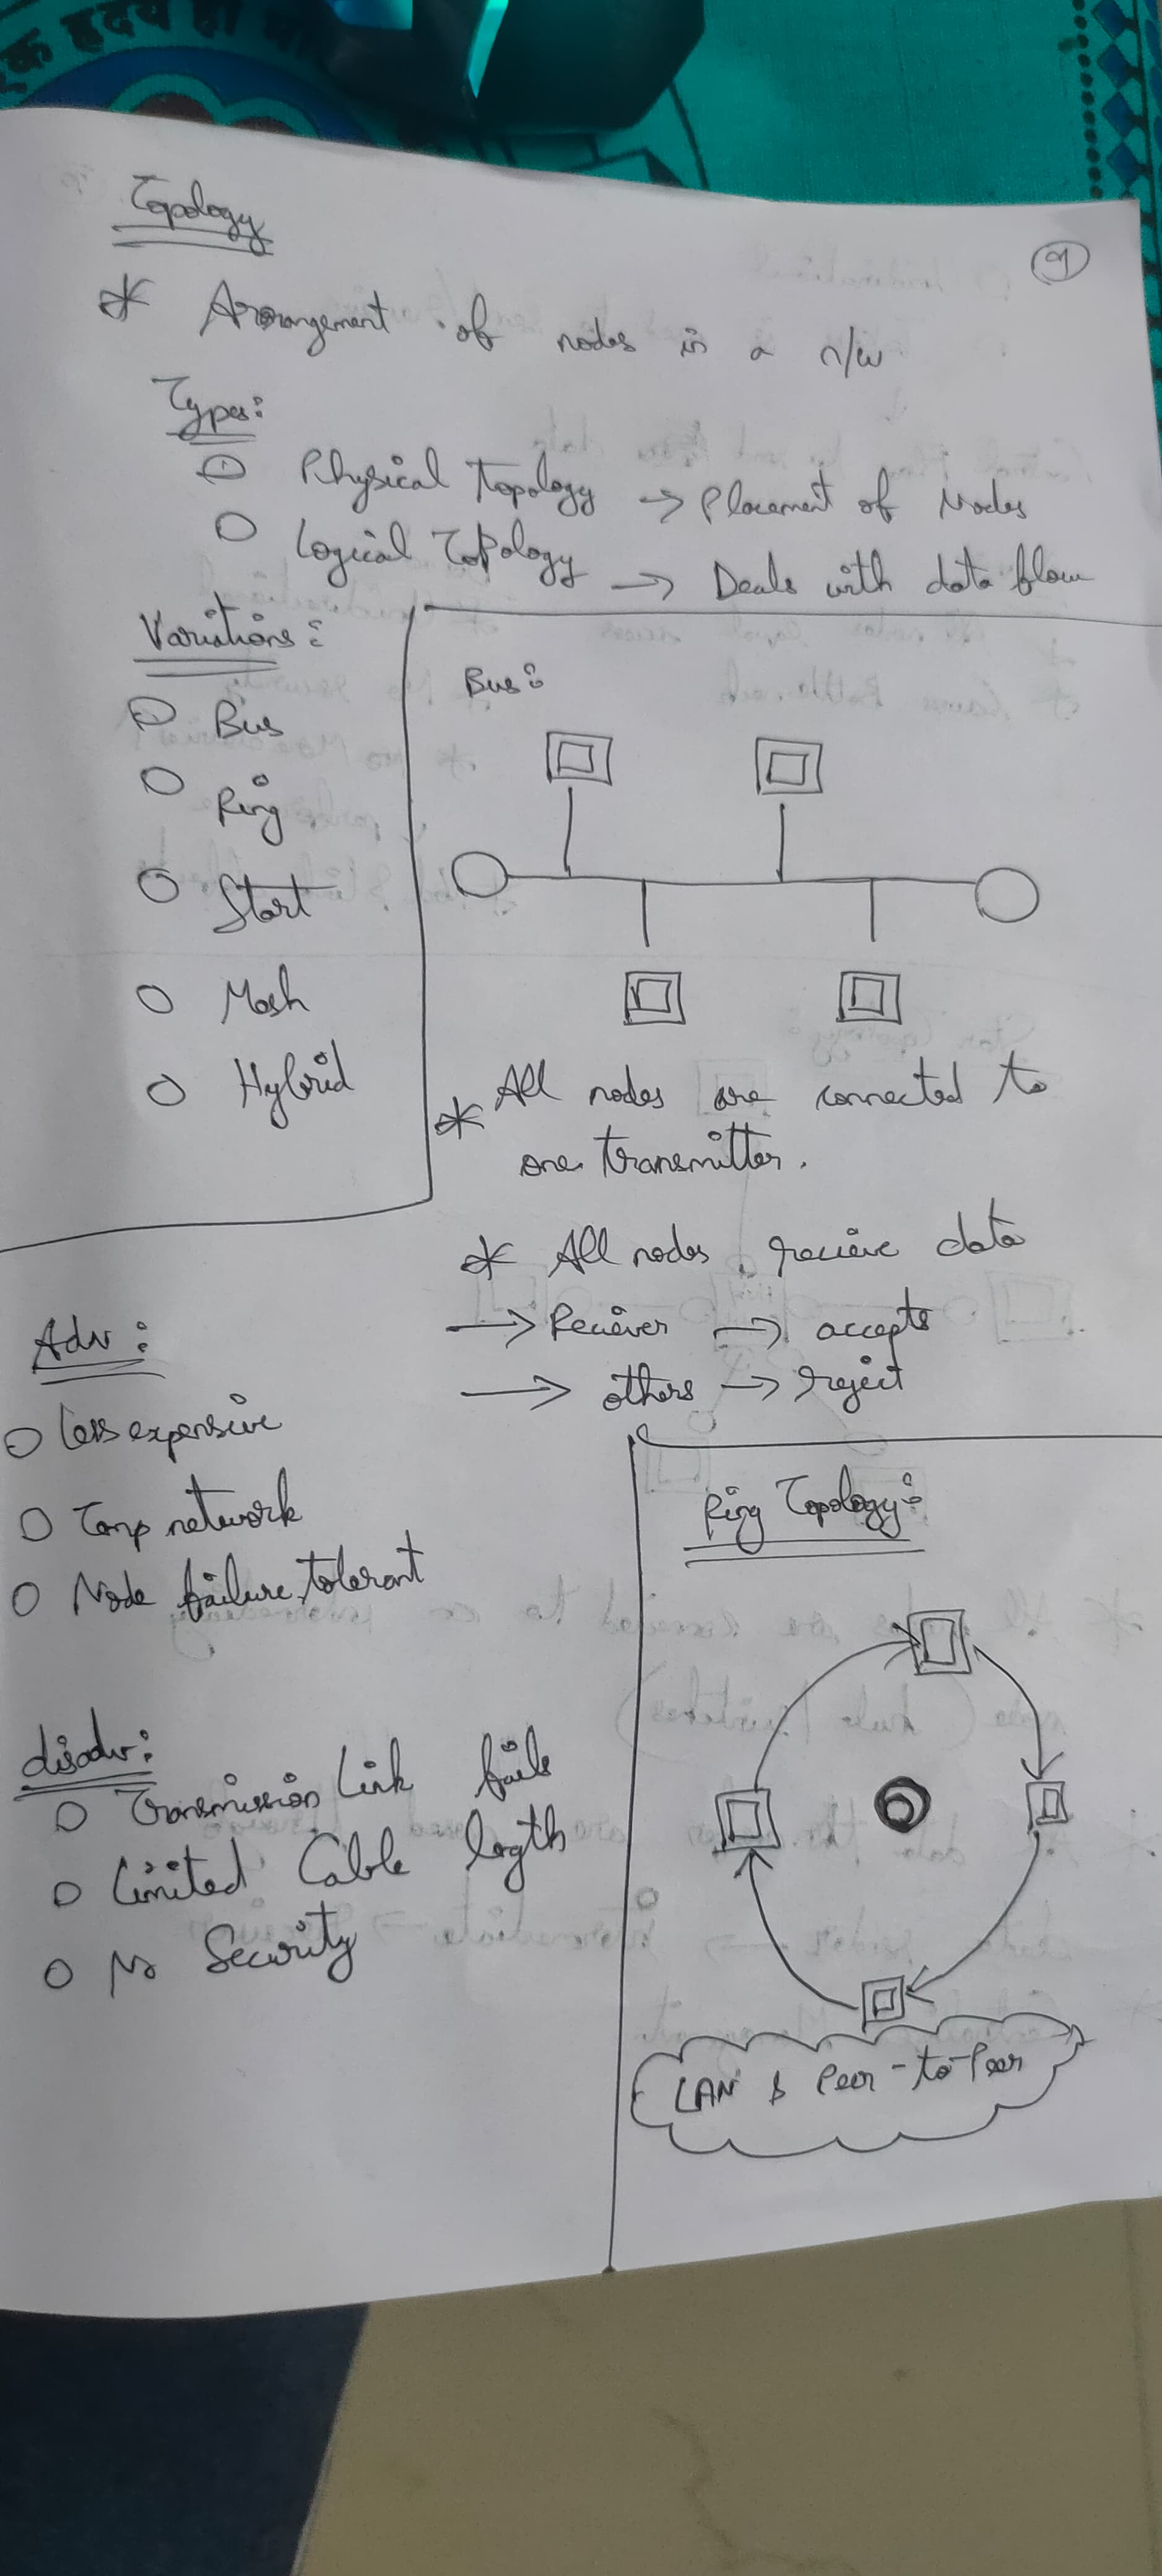 एक हृदय हो भा
Topology
9
* Arrangement of nodes in a n/w
Types:
Physical Topology → Placement of Nodes
Logical Topology → Deals with data flow
Variations:
Bus
Ring
Start
Mesh
Hybrid
Bus:
* All nodes are connected to
one transmitter.
* All nodes recieve data
→ Reciever → accepts
→ others → reject
Adv:
Less expensive
Temp network
Node failure tolerant
disadv:
Transmission Link fails
Limited Cable legth
No Security
Ring Topology:
LAN & Peer-to-Peer